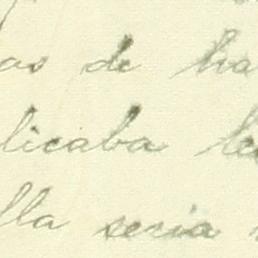 as de ha
licaba le
lla seria